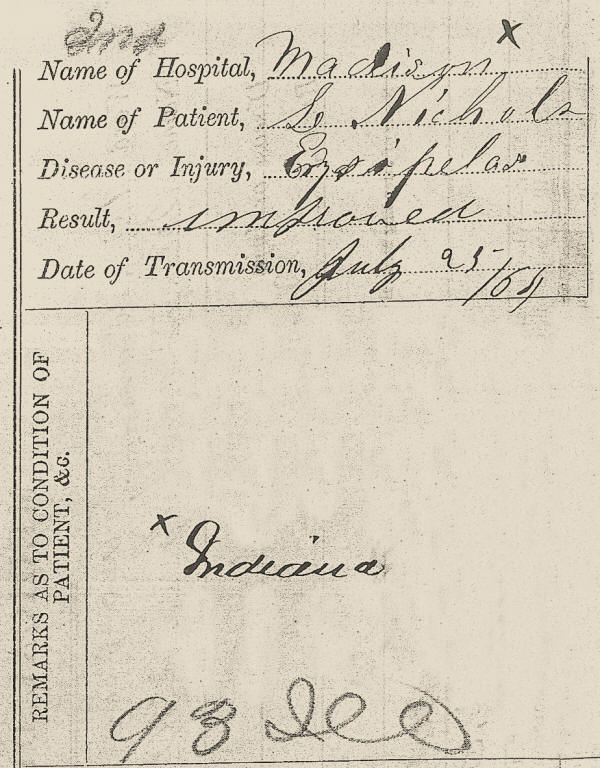 Ind x
Name of Hospital, Madison
Name of Patient, S. Nichols
Disease or Injury, Erysipelas
Result, improved
Date of Transmission, July 25/64
REMARKS AS TO CONDITION OF
PATIENT, &c.
x Indiana
93 Ill